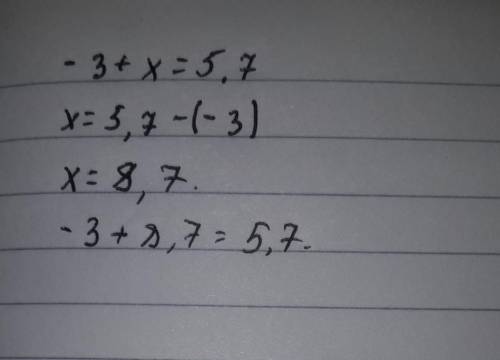 - 3 + x = 5,7
x = 5,7 - (- 3)
x = 8,7.
- 3 + 8,7 = 5,7.